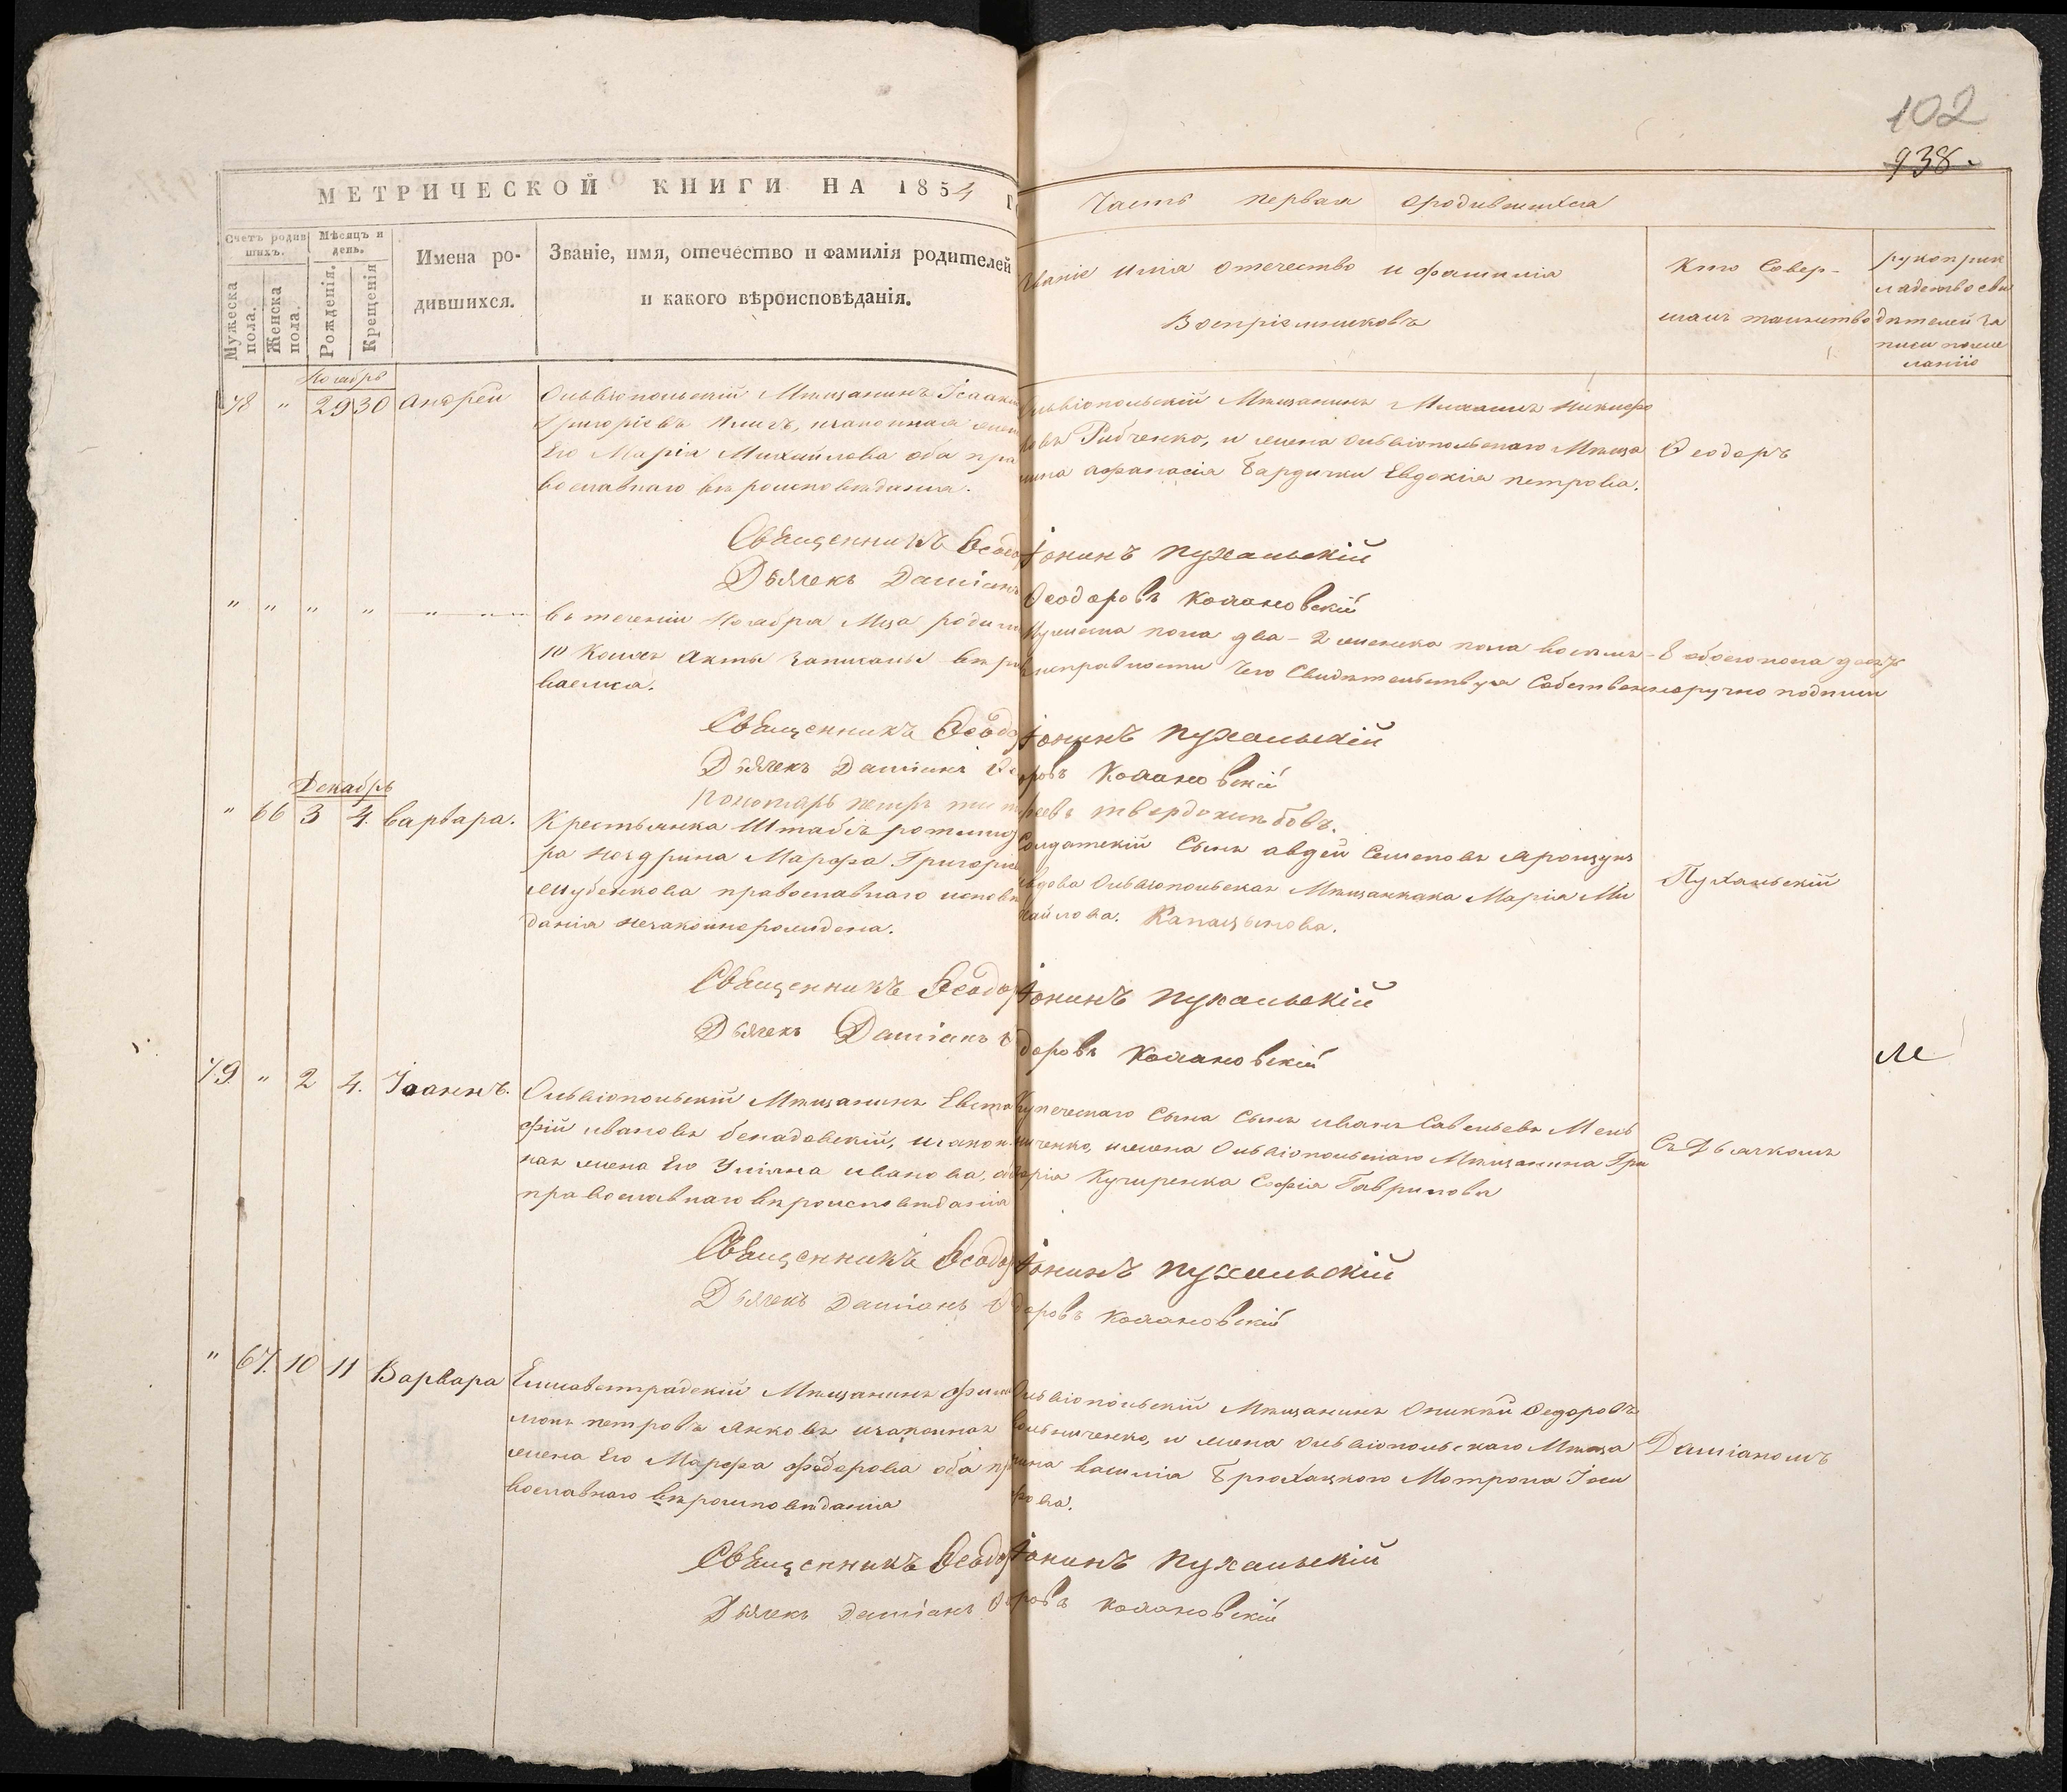 102
938.
МЕТРИЧЕСКОЙ КНИГИ НА 1854
Часть первая о родившихся
Счетъ родив
шихъ.
Мужеска
пола.
Женска
пола.
Мѣсяцъ и
день.
Рожденія.
Крещенія
Имена ро-
дившихся.
Званіе, имя, отечество и фамилія родителей
и какого вѣроисповѣданія.
Званіе имя отечество и фамилія
Воспріемниковъ
Кто Совер-
шалъ таинство
рукоприк
ладство сви
дѣтелей за
писи по же
ланію
Ноябрь
78 " 29 30 Андрей
Ольвіопольскій Мѣщанинъ Ісаакъ
Григоріевъ изаконная жен
Его Марія Михайлова оба пра
вославнаго вѣроисповѣданія.
Ольвіопольскій Мѣщанинъ Михаилъ Никифо
ровъ Рибченко, и жена Ольвіопольскаго Мѣща
нина Афанасія Бардички Евдокія петрова.
Ѳеодоръ
Священникъ Ѳеодо Іонинъ пухальскій
Дьячекъ Даміанъ Ѳеодоровъ Колановскій
" " " " "
въ теченіи Ноября Мца родил Мужеска пола два - 2 женска пола восемь - 8 обоего пола десять
10 Коихъ Акты записаны вѣр исправности Чего Свидѣтельствуя Собственноручно подписи
ваемся.
Священникъ Ѳеодо Іонинъ пухальскій
Дьячекъ Даміанъ Ѳеоровъ Колановскій
Пономарь петръ тимоѳеевъ твердохлѣбовъ.
Декабрь
" 66 3 4. Варвара.
Крестьянка Штабсъ ротмист
ра Ноздрина Марфа Григоріе
Шубенкова православнаго исповѣ
данія незаконнерождена.
Солдатскій Сынъ авдей Семеновъ
вдова Ольвіопольская Мѣщанкака Марія Ми
хайлова. Капацынова.
Пухальскій
Священникъ Ѳеодо Іонинъ пухальскій
Дьячекъ Даміанъ Ѳдоровъ Колановскій
79. " 2 4. Іоаннъ.
Ольвіопольскій Мѣщанинъ Евста
фій ивановъ бенадовскій, изакон
ная жена Его Уліяна иванова, об
православнаго вѣроисповѣданія
Купеческаго Сына Сынъ иванъ Савельевъ Мель
ниченко, ижена Ольвіопольскаго Мѣщанина Гри
горія Кучеренка Софія Гаврилова
Съ Дьячкомъ
М
Священникъ Ѳеодо Іонинъ пухальскій
Дьячекъ Даміанъ Ѳдоровъ Колановскій
" 67. 10 11 Варвара
Елисаветградскій Мѣщанинъ Фили
монъ петровъ Янковъ изаконная
жена Его Марфа Федорова оба пр
вославнаго вѣроисповѣданія
Ольвіопольскій Мѣщанинъ Оникій Ѳедоровъ
и жена Ольвіопольскаго Мѣща
нина василія Брюхацкого Мотрона Іоси
фова.
Даміаномъ
Священникъ Ѳеодо Іонинъ пухальскій
Дьячекъ Даміанъ Ѳоровъ Колановскій